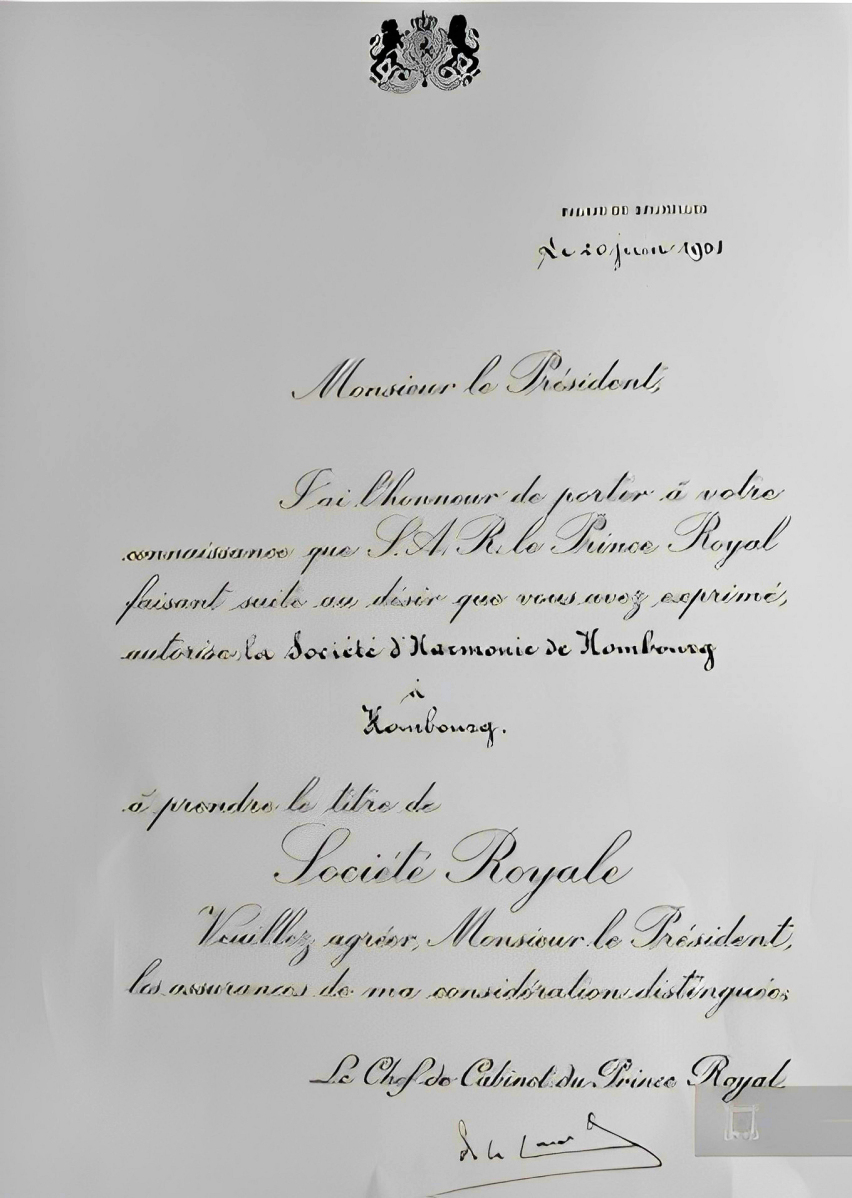 Le 20 juin 1901
Monsieur le Président,
J'ai l'honneur de porter à votre
connaissance que S. A. R. le Prince Royal
faisant suite au désir que vous avez exprimé,
autorise la Société d'Harmonie de Hombourg
à
Hombourg.
à prendre le titre de
Société Royale
Veuillez agréer, Monsieur le Président,
les assurances de ma considération distinguée.
Le Chef de Cabinet du Prince Royal